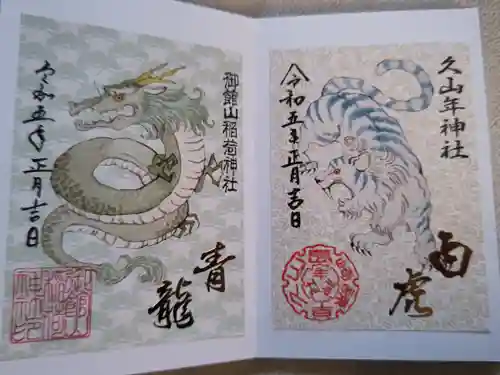 久山年神社
令和五年正月吉日
白虎
御館山稲荷神社
令和五年正月吉日
青龍